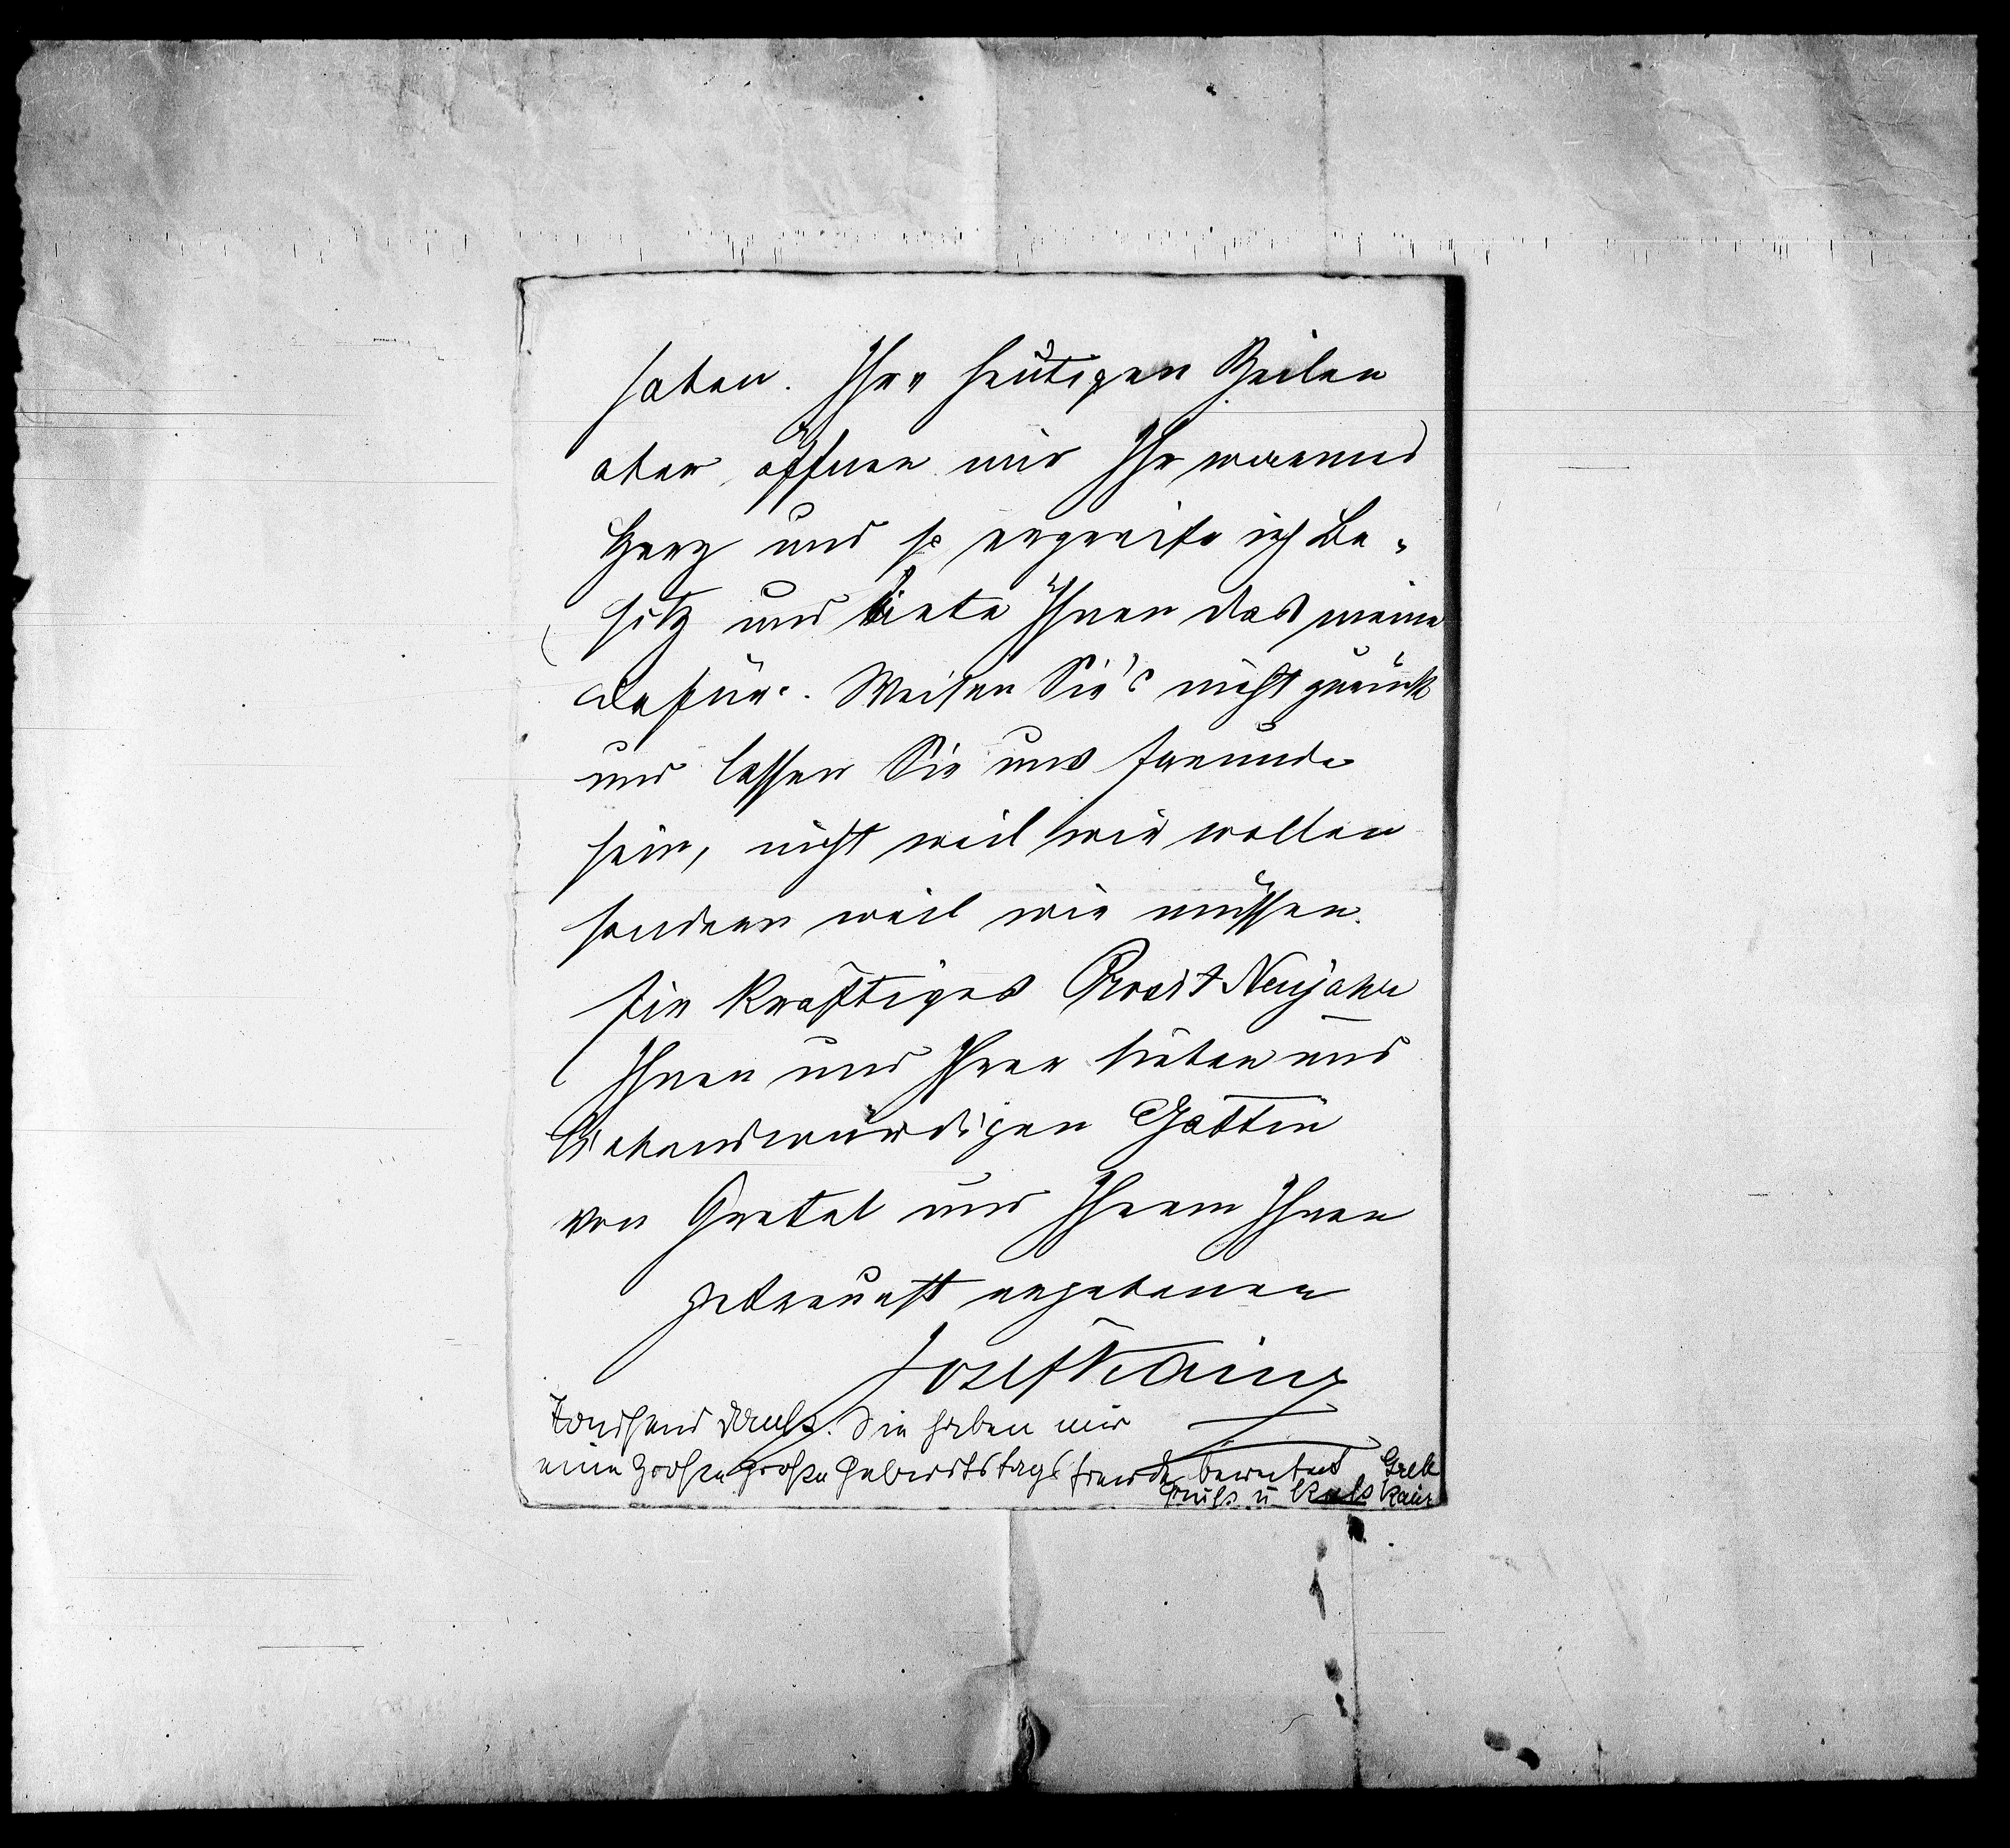 haben. Ihre heutigen Zeilen
aber öffnen mir Ihr warmes
Herz und so ergreife ich Be-
sitz und biete Ihnen das meine
dafür. Weisen Sie's nicht zurück
und lassen Sie uns Freunde
sein, nicht weil wir wollen
sondern weil wir müssen.
Ein kräftiges Prosit Neujahr
Ihnen und Ihrer lieben und
liebenswürdigen Gattin
von Gretel und Ihrem Ihnen
getreuest ergebenen
Josef Kainz
Tausend Dank. Sie haben mir
eine große große Geburtstagsfreude bereitet
Gruß u Kuß Kainz